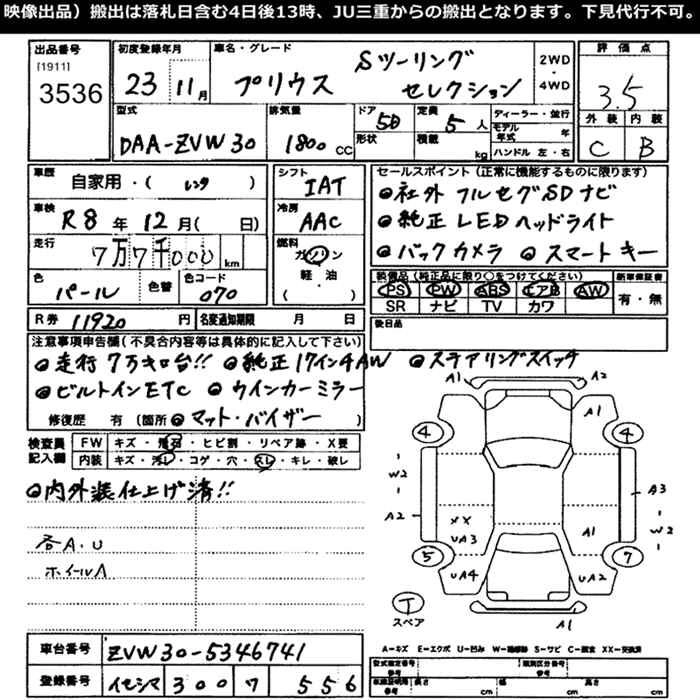 映像出品）搬出は落札日含む4日後13時、JU三重からの搬出となります。下見代行不可。
出品番号 初度登録年月 車名・グレード 評価点
[1911]
3536 23 11月 プリウス Sツーリング セレクション 2WD・4WD 3.5
型式 排気量 ドア 定員 ディーラー・並行 外装 内装
DAA-ZVW30 1800cc 5D 5人 モデル年式 年 C B
形状 積載 kg ハンドル 左・右
車歴 自家用・(レンタ) シフト IAT セールスポイント（正常に機能するものに限ります）
車検 R8年12月(日) 冷房 AAC ◎社外フルセグSDナビ
◎純正LEDヘッドライト
走行 7万7千000km 燃料 ガソリン 軽・油 ( ) ◎バックカメラ ◎スマートキー
色 パール 色替 色コード 070 装備品（純正品に限り○をつけてください） 新車保証書
PS PW ABS エアB AW 有・無
SR ナビ TV カワ
R券 11920円 名変通知期限 月 日 後日品
注意事項申告欄（不具合内容等は具体的に記入して下さい）
◎走行7万キロ台!! ◎純正17インチAW ◎ステアリングスイッチ
◎ビルトインETC ◎ウインカーミラー
修復歴 有 (箇所 ◎マット・バイザー )
検査員記入欄 FW キズ・飛石・ヒビ割・リペア跡・X要
内装 キズ・汚レ・コゲ・穴・スレ・キレ・破レ
◎内外装仕上げ済!!
各A.U
ホイールA
A1 A2
A1
4 4
W2
A3
A2 W2
XX
UA3 A1
5 7
UA4 UA2
T
スペア
A1
車台番号 ZVW30-5346741
A=キズ E=エクボ U=凹み W=補修跡 S=サビ C=腐食 XX=交換済
登録番号 イセシマ 300 ワ 556
型式指定番号 参考 類別区分番号 参考
車検証明用 参考 長さ cm 幅 cm 高さ cm